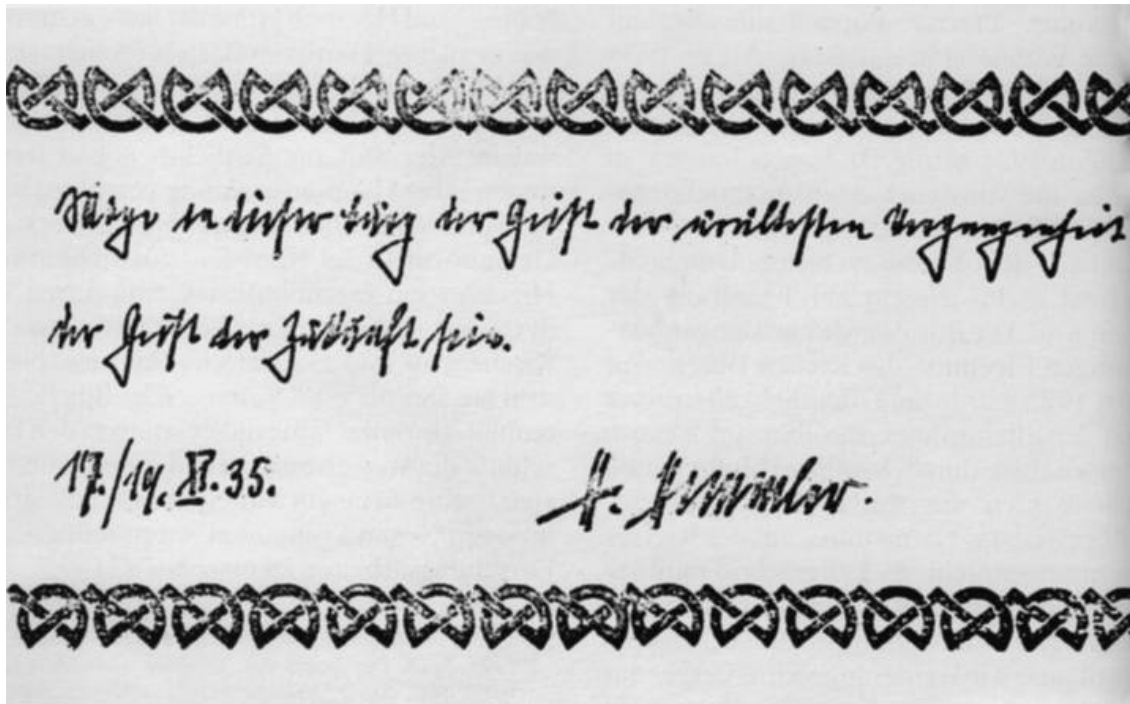 Möge in dieser Burg der Geist der urältesten Vergangenheit
der Geist der Zukunft sein.
17./19. XI. 35.
H. Himmler.